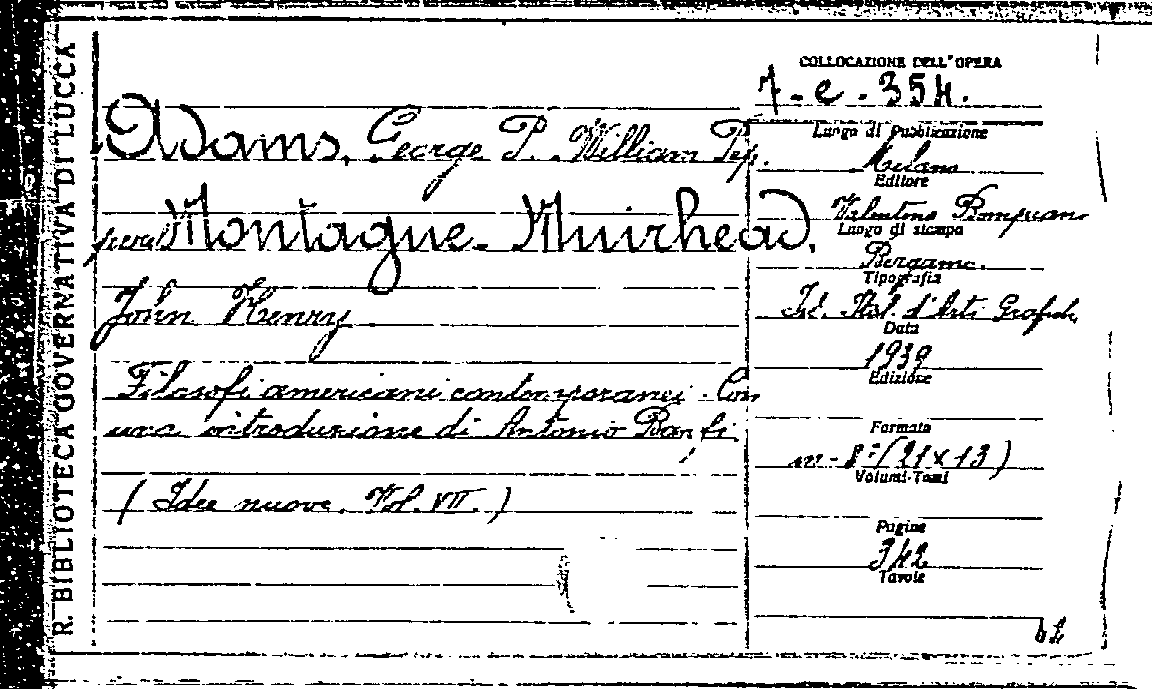 R. BIBLIOTECA GOVERNATIVA DI LUCCA
COLLOCAZIONE DELL'OPERA
7-e-354.
Adams, George P. William Pep.
perel Montague - Muirhead,
John Henry
Filosofi americani contemporanei. Con
una introduzione di Antonio Banfi.
(Idee nuove. Vol. VII.)
Luogo di Pubblicazione
Milano
Editore
Valentino Bompiani
Luogo di stampa
Bergamo.
Tipografia
Ist. Ital. d'Arti Grafich
Data
1939
Edizione
Formato
in-8° (21x13)
Volumi-Tomi
Pagine
342
Tavole